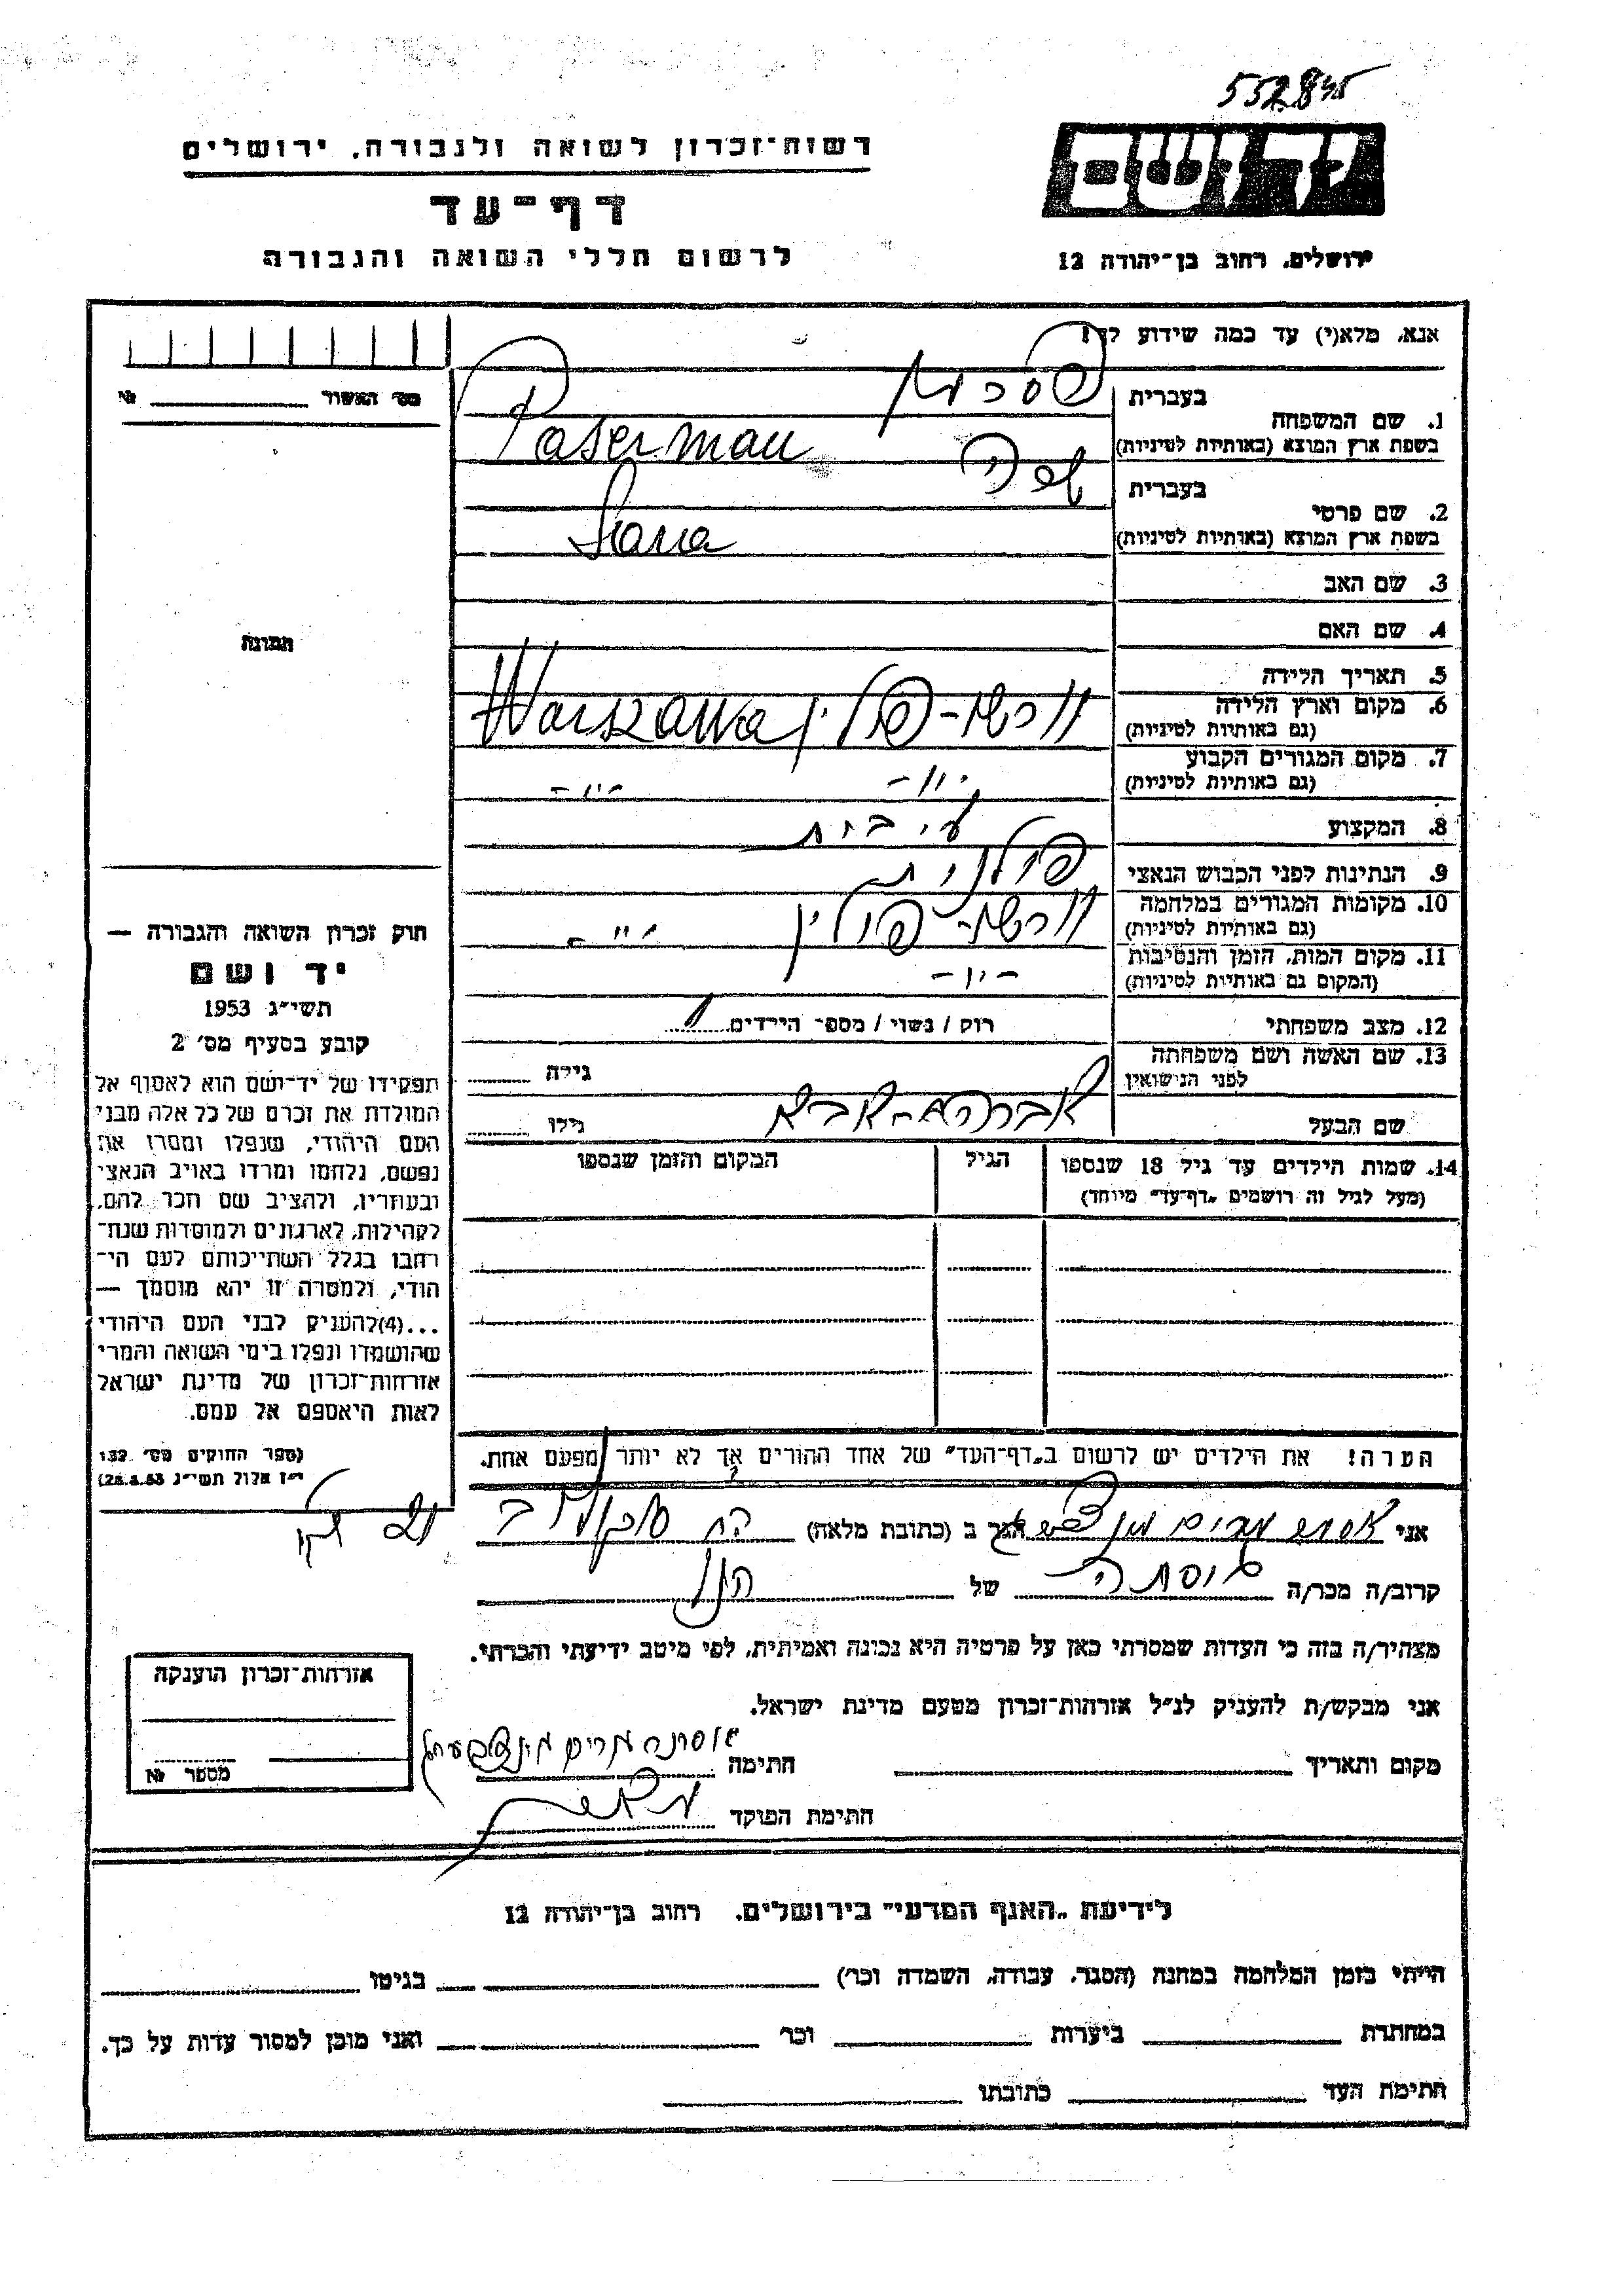 552835
רשות־זכרון לשואה ולגבורה, ירושלים
יד ושם
דף־עד
לרשום חללי השואה והגבורה
ירושלים, רחוב בן־יהודה 12
אנא, מלא(י) עד כמה שידוע לך!
מס׳ האשור № 
1. שם המשפחה
בעברית פסרמן
בשפת ארץ המוצא (באותיות לטיניות) Paserman
2. שם פרטי
בעברית
בשפת ארץ המוצא (באותיות לטיניות)
3. שם האב
4. שם האם
תמונה
5. תאריך הלידה
6. מקום וארץ הלידה
(גם באותיות לטיניות) ורשה - פולין Warszawa
7. מקום המגורים הקבוע
(גם באותיות לטיניות) -"- -"-
8. המקצוע
9. הנתינות לפני הכבוש הנאצי פולנית
10. מקומות המגורים במלחמה
(גם באותיות לטיניות) ורשה - פולין -"-
11. מקום המות, הזמן והנסיבות
(המקום גם באותיות לטיניות) -"-
12. מצב משפחתי רוק / נשוי / מספ־ הילדים
13. שם האשה ושם משפחתה
לפני הנישואין גילה
שם הבעל אברהם-אבא גילו
14. שמות הילדים עד גיל 18 שנספו הגיל המקום והזמן שנספו
(מעל לגיל זה רושמים „דף־עד" מיוחד)
חוק זכרון השואה והגבורה —
יד ושם
תשי״ג 1953
קובע בסעיף מס׳ 2
תפקידו של יד־ושם הוא לאסוף אל
המולדת את זכרם של כל אלה מבני
העם היהודי, שנפלו ומסרו את
נפשם, נלחמו ומרדו באויב הנאצי
ובעוזריו, ולהציב שם וזכר להם,
לקהילות, לארגונים ולמוסדות שנח־
רבו בגלל השתייכותם לעם הי־
הודי, ולמטרה זו יהא מוסמך —
...(4)להעניק לבני העם היהודי
שהושמדו ונפלו בימי השואה והמרי
אזרחות־זכרון של מדינת ישראל
לאות היאספם אל עמם.
(ספר החוקים מס׳ 132,
י״ז אלול תשי״ג 28.8.53)
הערה! את הילדים יש לרשום ב„דף־העד" של אחד ההורים אך לא יותר מפעם אחת.
אני הגר ב (כתובת מלאה)
קרוב/ה מכר/ה גיסתה של הנ"ל
מצהיר/ה בזה כי העדות שמסרתי כאן על פרטיה היא נכונה ואמיתית, לפי מיטב ידיעתי והכרתי.
אני מבקש/ת להעניק לנ״ל אזרחות־זכרון מטעם מדינת ישראל.
מקום ותאריך חתימה
חתימת הפוקד
אזרחות־זכרון הוענקה
מספר №
לידיעת „האגף המדעי" בירושלים, רחוב בן־יהודה 12
הייתי בזמן המלחמה במחנה (הסגר, עבודה, השמדה וכר׳) בגיטו
במחתרת ביערות וכר׳ ואני מוכן למסור עדות על כך.
חתימת העד כתובתו